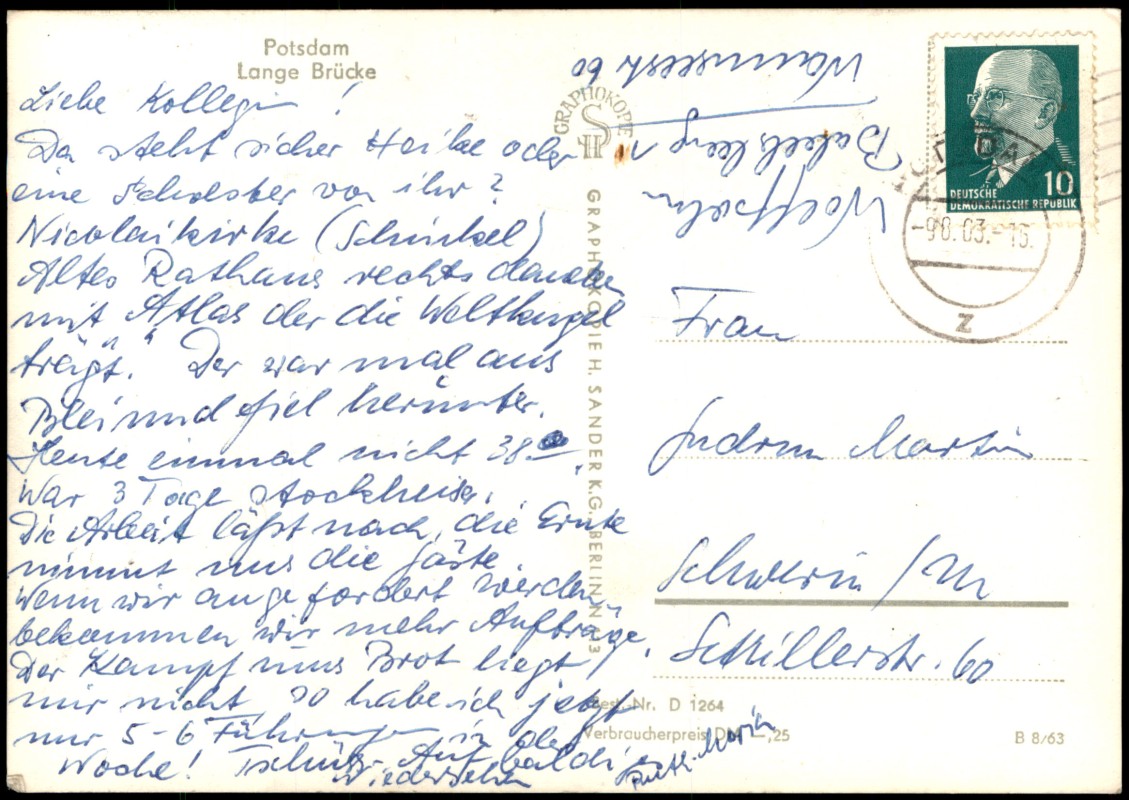 Potsdam
Lange Brücke
Liebe Kollegin!
Da steht sicher Heike oder
eine Schwester von ihr?
Nicolaikirke (Schinkel)
Altes Rathaus rechts daneben
mit "Atlas der die Weltkugel
trägt." Der war mal aus
Blei und fiel herunter.
Heute einmal nicht 38°.
War 3 Tage stockheiser.
Die Arbeit läßt nach, die Ernte
nimmt uns die Gäste.
Wenn wir angefordert werden,
bekommen wir mehr Aufträge.
Der Kampf ums Brot liegt
mir nicht, so habe ich jetzt
nur 5-6 Führungen in der
Woche! Tschüss Auf baldiges
Wiedersehen
Ruth-Maria
GRAPHOKOPIE
H S
GRAPHOKOPIE H. SANDER K.G. BERLIN N 113
Babelsberg 1
Wannseestr 60
10
DEUTSCHE
DEMOKRATISCHE REPUBLIK
Z
Frau
Martin
Schwerin/M
Schillerstr. 60
Best.-Nr. D 1264
Verbraucherpreis DM —,25
B 8/63